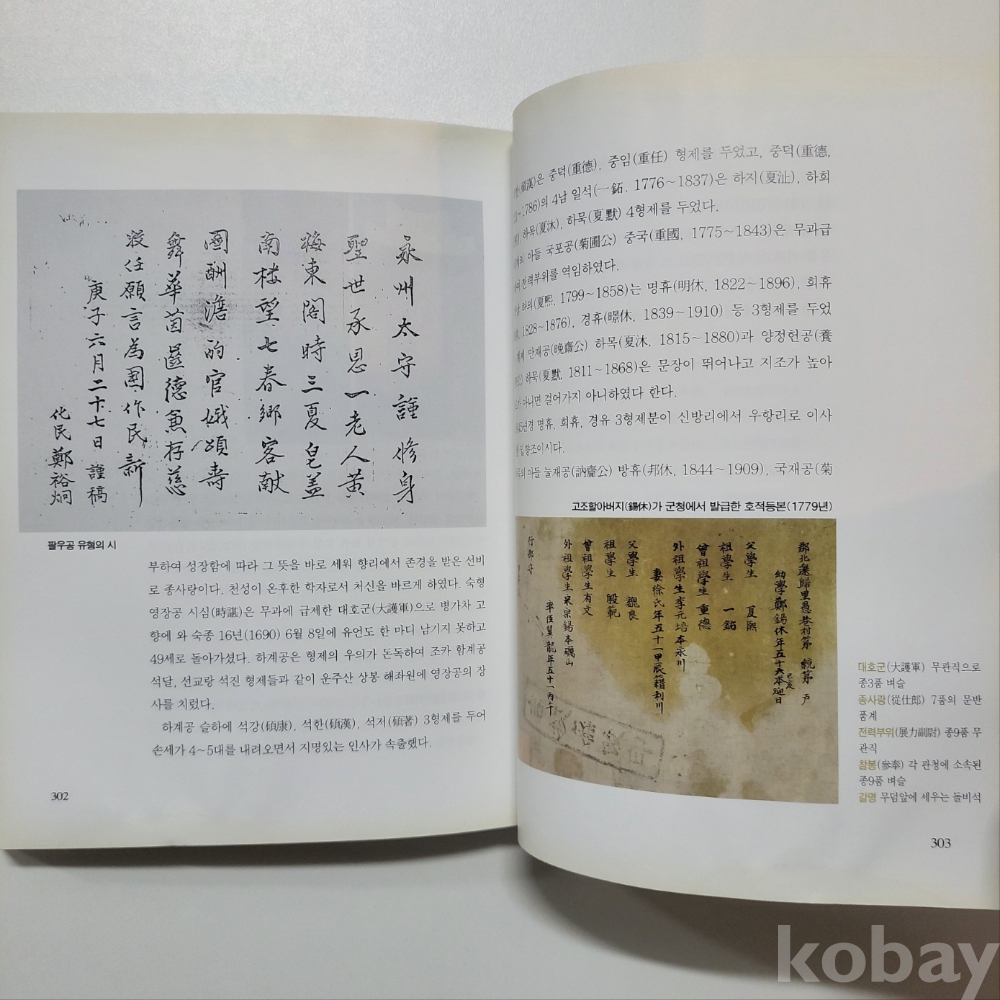 永州太守謹修身
聖世承恩一老人黃
梅東閣時三夏皂盖
南楼望七春鄉客献
國酬澹的官娥頌壽
舞華茵匿德兼存慈
汝任願言為國作民新
庚子六月二十七日 謹稿
化民鄭裕炯
팔우공 유형의 시
부하여 성장함에 따라 그 뜻을 바로 세워 향리에서 존경을 받은 선비
로 종사랑이다. 천성이 온후한 학자로서 처신을 바르게 하였다. 숙형
영장공 시심(時諶)은 무과에 급제한 대호군(大護軍)으로 병가차 고
향에 와 숙종 16년(1690) 6월 8일에 유언도 한 마디 남기지 못하고
49세로 돌아가셨다. 하계공은 형제의 우의가 돈독하여 조카 함계공
석달, 선교랑 석진 형제들과 같이 운주산 상봉 해좌원에 영장공의 장
사를 치렀다.
하계공 슬하에 석강(碩康), 석한(碩漢), 석저(碩著) 3형제를 두어
손세가 4~5대를 내려오면서 지명있는 인사가 속출했다.
302
은 중덕(重德), 중임(重任) 형제를 두었고, 중덕(重德,
1786)의 4남 일석(一鉐, 1776~1837)은 하지(夏沚), 하희
하목(夏沐), 하묵(夏默) 4형제를 두었다.
아들 국포공(菊圃公) 중국(重國, 1775~1843)은 무과급
전력부위를 역임하였다.
하희(夏熙, 1799~1858)는 명휴(明休, 1822~1896), 희휴
1828~1876), 경휴(暻休, 1839~1910) 등 3형제를 두었
만재공(晚齋公) 하목(夏沐, 1815~1880)과 양정헌공(養
하묵(夏默, 1811~1868)은 문장이 뛰어나고 지조가 높아
아니면 걸어가지 아니하였다 한다.
명휴, 희휴, 경유 3형제분이 신방리에서 우항리로 이사
향조이시다.
아들 눌재공(訥齋公) 방휴(邦休, 1844~1909), 국재공(菊
고조할아버지(錫休)가 군청에서 발급한 호적등본(1779년)
郡北邊歸里愚巷村第 統第 戶
幼學鄭錫休年五十六本延日
父學生 夏熙
祖學生 一鉐
曾祖學生 重德
外祖學生李元培本永川
妻徐氏年五十一甲辰籍利川
父學生
祖學生 殷範
曾祖學生有文
外祖學生吳宗錫本礪山
대호군(大護軍) 무관직으로
종3품 벼슬
종사랑(從仕郎) 7품의 문반
품계
전력부위(展力副尉) 종9품 무
관직
참봉(參奉) 각 관청에 소속된
종9품 벼슬
갈명 무덤앞에 세우는 돌비석
303
kobay